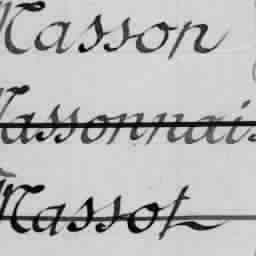 Masson
Massonnais
Massot